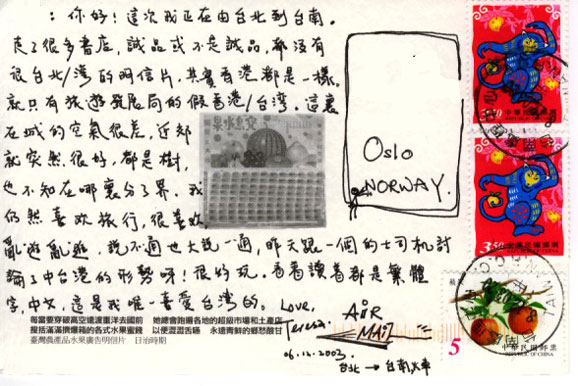 ：你好！這次我正在由台北到台南。
走了很多書店，誠品或不是誠品，都沒有
很台北/灣的明信片，其實香港都是一樣，
就只有旅遊發展局的假香港/台灣。這裏
在城的空氣很差，近郊
就突然很好，都是樹，
也不知在哪裏分了界。我
仍然喜欢旅行，很喜欢
亂逛亂逛，說不通也大說一通，昨天跟一個的士司机討
論了中台港的形勢呀！很好玩。看看讀着都是繁體
字，中文，這是我唯一喜愛台灣的。
Love,
Teresa.
06.12.2003
台北 → 台南火車
AIR
MAIL
Oslo
NORWAY.
每當要穿破高空遠渡重洋去國前　她總會跑遍各地的超級市場和土產店
搜括滿滿擠爆箱的各式水果蜜餞　以便澀澀舌唾　永遠青鮮的鄉愁酸甘
臺灣農產品水果廣告明信片　日治時期
350
中華民國郵票
REPUBLIC OF CHINA
350
中華民國郵票
REPUBLIC OF CHINA
5
中華民國郵票
REPUBLIC OF CHINA